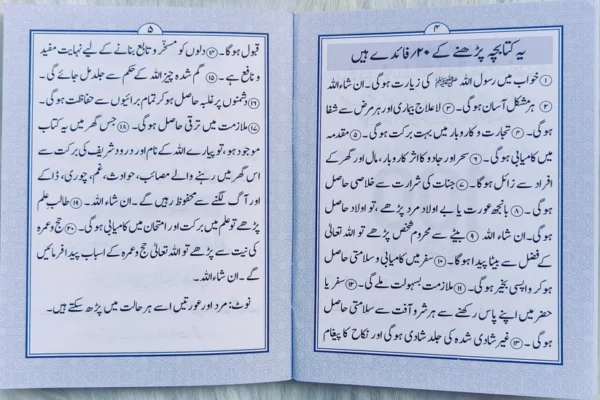 ۴
یہ کتابچہ پڑھنے کے ۲۰؍ فائدے ہیں
① خواب میں رسول اللہ ﷺ کی زیارت ہوگی۔ ان شاء اللہ
② ہر مشکل آسان ہوگی۔ ③ لاعلاج بیماری اور ہر مرض سے شفا
ہوگی۔ ④ تجارت و کاروبار میں بہت برکت ہوگی۔ ⑤ مقدمہ
میں کامیابی ہوگی۔ ⑥ سحر اور جادو کا اثر کاروبار، مال اور گھر کے
افراد سے زائل ہوگا۔ ⑦ جنات کی شرارت سے خلاصی حاصل
ہوگی۔ ⑧ بانجھ عورت یا بے اولاد مرد پڑھے، تو اولاد حاصل
ہوگی۔ ان شاء اللہ ⑨ بیٹے سے محروم شخص پڑھے تو اللہ تعالیٰ
کے فضل سے بیٹا پیدا ہوگا۔ ⑩ سفر میں کامیابی و سلامتی حاصل
ہوکر واپسی بخیر ہوگی۔ ⑪ ملازمت بسہولت ملے گی۔ ⑫ سفر یا
حضر میں اپنے پاس رکھنے سے ہر شر و آفت سے سلامتی حاصل
ہوگی۔ ⑬ غیر شادی شدہ کی جلد شادی ہوگی اور نکاح کا پیغام
۵
قبول ہوگا۔ ⑭ دلوں کو مسخّر و تابع بنانے کے لیے نہایت مفید
و نافع ہے۔ ⑮ گم شدہ چیز اللہ کے حکم سے جلد مل جائے گی۔
⑯ دشمنوں پر غلبہ حاصل ہوکر تمام برائیوں سے حفاظت ہوگی۔
⑰ ملازمت میں ترقی حاصل ہوگی۔ ⑱ جس گھر میں یہ کتاب
موجود ہو، تو پیارے اللہ کے نام اور درود شریف کی برکت سے
اس گھر میں رہنے والے مصائب، حوادث، غم، چوری، ڈاکے
اور آگ لگنے سے محفوظ رہیں گے۔ ان شاء اللہ۔ ⑲ طالب علم
پڑھے تو علم میں برکت اور امتحان میں کامیابی ہوگی۔ ⑳ حج و عمرہ
کی نیت سے پڑھے تو اللہ تعالیٰ حج و عمرہ کے اسباب پیدا فرمائیں
گے۔ ان شاء اللہ۔
نوٹ: مرد اور عورتیں اسے ہر حالت میں پڑھ سکتے ہیں۔